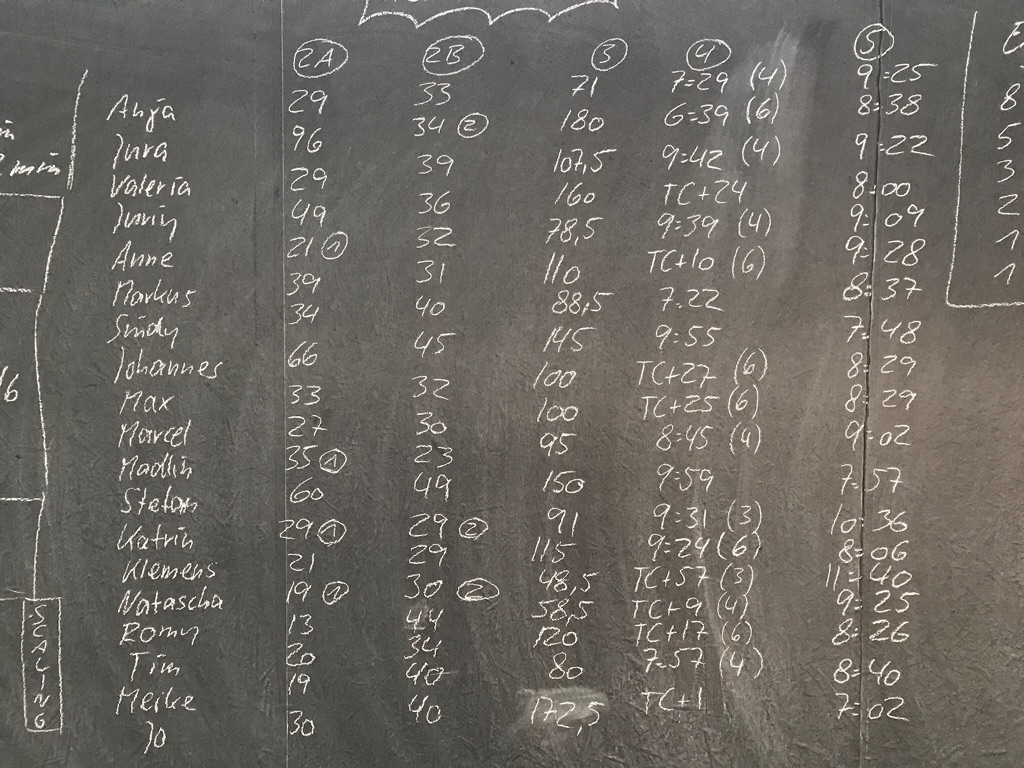 2A 2B 3 4 5
Anja 29 33 71 7:29 (4) 9:25 8
Jura 96 34 ② 180 6:39 (6) 8:38 5
Valeria 29 39 107,5 9:42 (4) 9:22 3
49 36 160 TC+24 8:00 2
Anne 21 ① 32 78,5 9:39 (4) 9:09 1
Markus 39 31 110 TC+10 (6) 9:28 1
Sindy 34 40 88,5 7:22 8:37
Johannes 66 45 145 9:55 7:48
Max 33 32 100 TC+27 (6) 8:29
Marcel 27 30 100 TC+25 (6) 8:29
Madlin 35 ① 23 95 8:45 (4) 9:02
Stefan 60 49 150 9:59 7:57
Katrin 29 ① 29 ② 91 9:31 (3) 10:36
Klemens 21 29 115 9:29 (6) 8:06
Natascha 19 ① 30 ② 48,5 TC+57 (3) 11:40
Romy 13 44 58,5 TC+9 (4) 9:25
Tim 20 34 120 TC+17 (6) 8:26
Meike 19 40 80 7:57 (4) 8:40
Jo 30 40 172,5 TC+1 7:02
min
SCALING